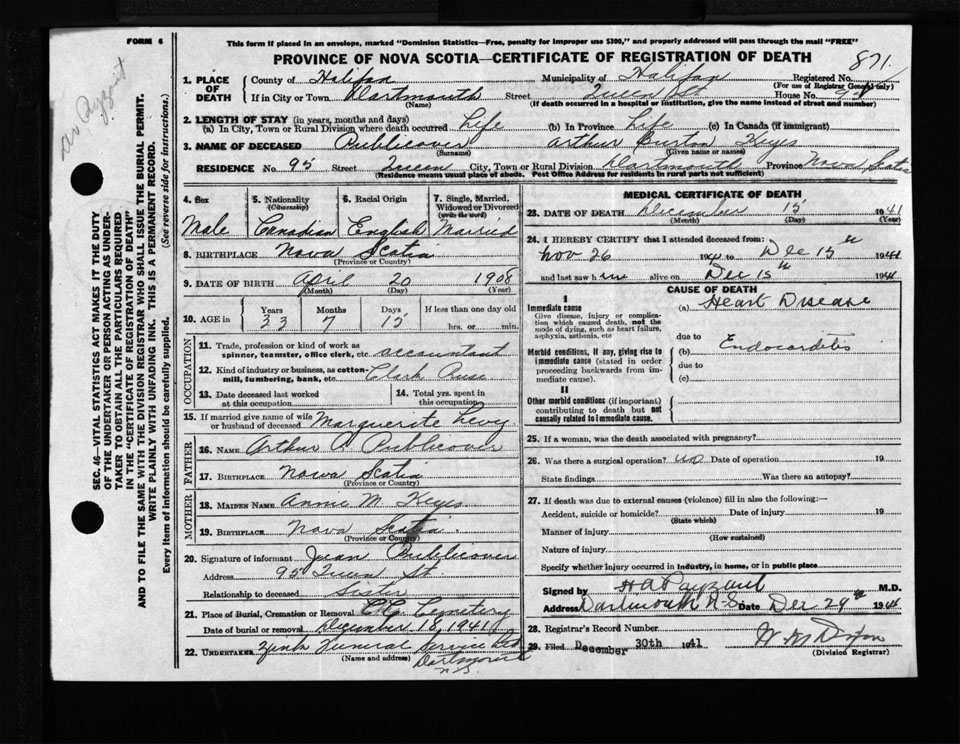 FORM 6
This form if placed in an envelope, marked "Dominion Statistics—Free, penalty for improper use $300," and properly addressed will pass through the mail "FREE"
PROVINCE OF NOVA SCOTIA—CERTIFICATE OF REGISTRATION OF DEATH
871
1. PLACE OF DEATH
County of Halifax Municipality of Halifax Registered No.
(For use of Registrar General only)
If in City or Town Dartmouth Street Queen St House No. 95
(Name) (If death occurred in a hospital or institution, give the name instead of street and number)
2. LENGTH OF STAY (in years, months and days)
(a) In City, Town or Rural Division where death occurred Life (b) In Province Life (c) In Canada (if immigrant)
3. NAME OF DECEASED Publicover Arthur Burton Keyes
(Surname) (Given name or names)
RESIDENCE No. 95 Queen City, Town or Rural Division Dartmouth Province Nova Scotia
(Residence means usual place of abode. Post Office Address for residents in rural parts not sufficient)
4. Sex 5. Nationality (Citizenship) 6. Racial Origin 7. Single, Married, Widowed or Divorced (write the word)
Male Canadian English Married
8. BIRTHPLACE Nova Scotia
(Province or Country)
9. DATE OF BIRTH April 20 1908
(Month) (Day) (Year)
10. AGE in Years Months Days If less than one day old
33 7 15 hrs. or min.
OCCUPATION
11. Trade, profession or kind of work as spinner, teamster, office clerk, etc. accountant
12. Kind of industry or business, as cotton-mill, lumbering, bank, etc. Clark
13. Date deceased last worked at this occupation 14. Total yrs. spent in this occupation
15. If married give name of wife or husband of deceased Marguerite Levy
FATHER
16. NAME Arthur Publicover
17. BIRTHPLACE Nova Scotia
(Province or Country)
MOTHER
18. MAIDEN NAME Annie M. Keyes
19. BIRTHPLACE Nova Scotia
(Province or Country)
20. Signature of informant Jean Publicover
Address 95 Queen St
Relationship to deceased Sister
21. Place of Burial, Cremation or Removal C.E. Cemetery
Date of burial or removal December 18, 1941
22. UNDERTAKER Zinks Funeral Service Ltd
(Name and address) Dartmouth
N.S.
MEDICAL CERTIFICATE OF DEATH
23. DATE OF DEATH December 15 1941
(Month) (Day) (Year)
24. I HEREBY CERTIFY that I attended deceased from:
Nov 26 1941 to Dec 15th 1941
and last saw him alive on Dec 15th 1941
CAUSE OF DEATH
I
Immediate cause (a) Heart Disease
Give disease, injury or complication which caused death, not the mode of dying, such as heart failure, asphyxia, asthenia, etc
due to
Morbid conditions, if any, giving rise to immediate cause (stated in order proceeding backwards from immediate cause).
(b) Endocarditis
due to
(c)
II
Other morbid conditions (if important) contributing to death but not causally related to immediate cause.
25. If a woman, was the death associated with pregnancy?
26. Was there a surgical operation? no Date of operation 19
State findings Was there an autopsy?
27. If death was due to external causes (violence) fill in also the following:—
Accident, suicide or homicide? Date of injury 19
(State which)
Manner of injury
(How sustained)
Nature of injury
Specify whether injury occurred in industry, in home, or in public place
Signed by H A Payzant M.D.
Address Dartmouth N.S. Date Dec 29th 1941
28. Registrar's Record Number
29. Filed December 30th 1941
(Division Registrar)
SEC. 46—VITAL STATISTICS ACT MAKES IT THE DUTY
OF THE UNDERTAKER OR PERSON ACTING AS UNDER-
TAKER TO OBTAIN ALL THE PARTICULARS REQUIRED
IN THE "CERTIFICATE OF REGISTRATION OF DEATH"
AND TO FILE THE SAME WITH THE DIVISION REGISTRAR WHO SHALL ISSUE THE BURIAL PERMIT.
WRITE PLAINLY WITH UNFADING INK. THIS IS A PERMANENT RECORD.
Every item of information should be carefully supplied. (See reverse side for instructions.)
Dr Payzant